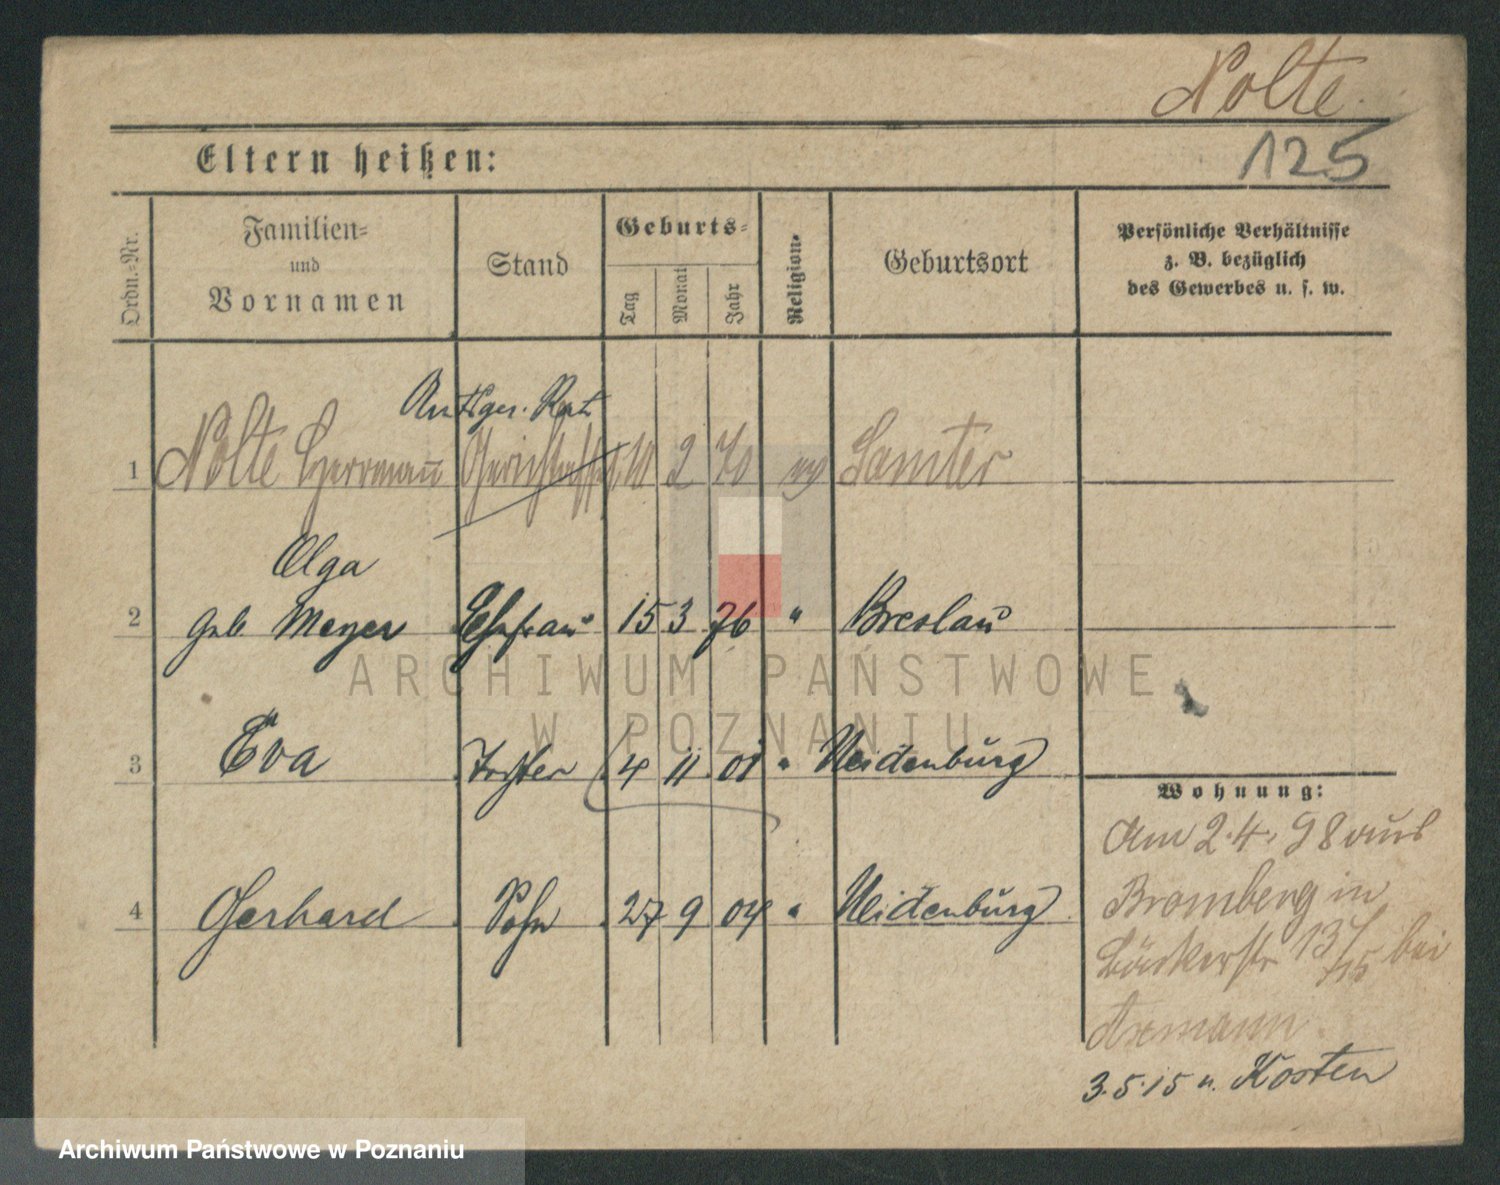 Nolte.
125
Eltern heißen:
Ordn.-Nr.
Familien-
und
Vornamen
Stand
Geburts-
Tag
Monat
Jahr
Religion.
Geburtsort
Persönliche Verhältnisse
z. B. bezüglich
des Gewerbes u. s. w.
Amtsger. Rat
1 Nolte Herrmann Gerichtsassess. 10 2 70 ev Samter
Olga
2 geb Meyer Ehefrau 15 3 76 " Breslau
3 Eva Tochter 4 11 01 " Neidenburg
Wohnung:
4 Gerhard Sohn 27 9 04 " Neidenburg
Am 2.4.98 aus
Bromberg in
Bäckerstr 13/15 bei
Axmann.
3.5.15 n. Kosten
ARCHIWUM PAŃSTWOWE
W POZNANIU
Archiwum Państwowe w Poznaniu